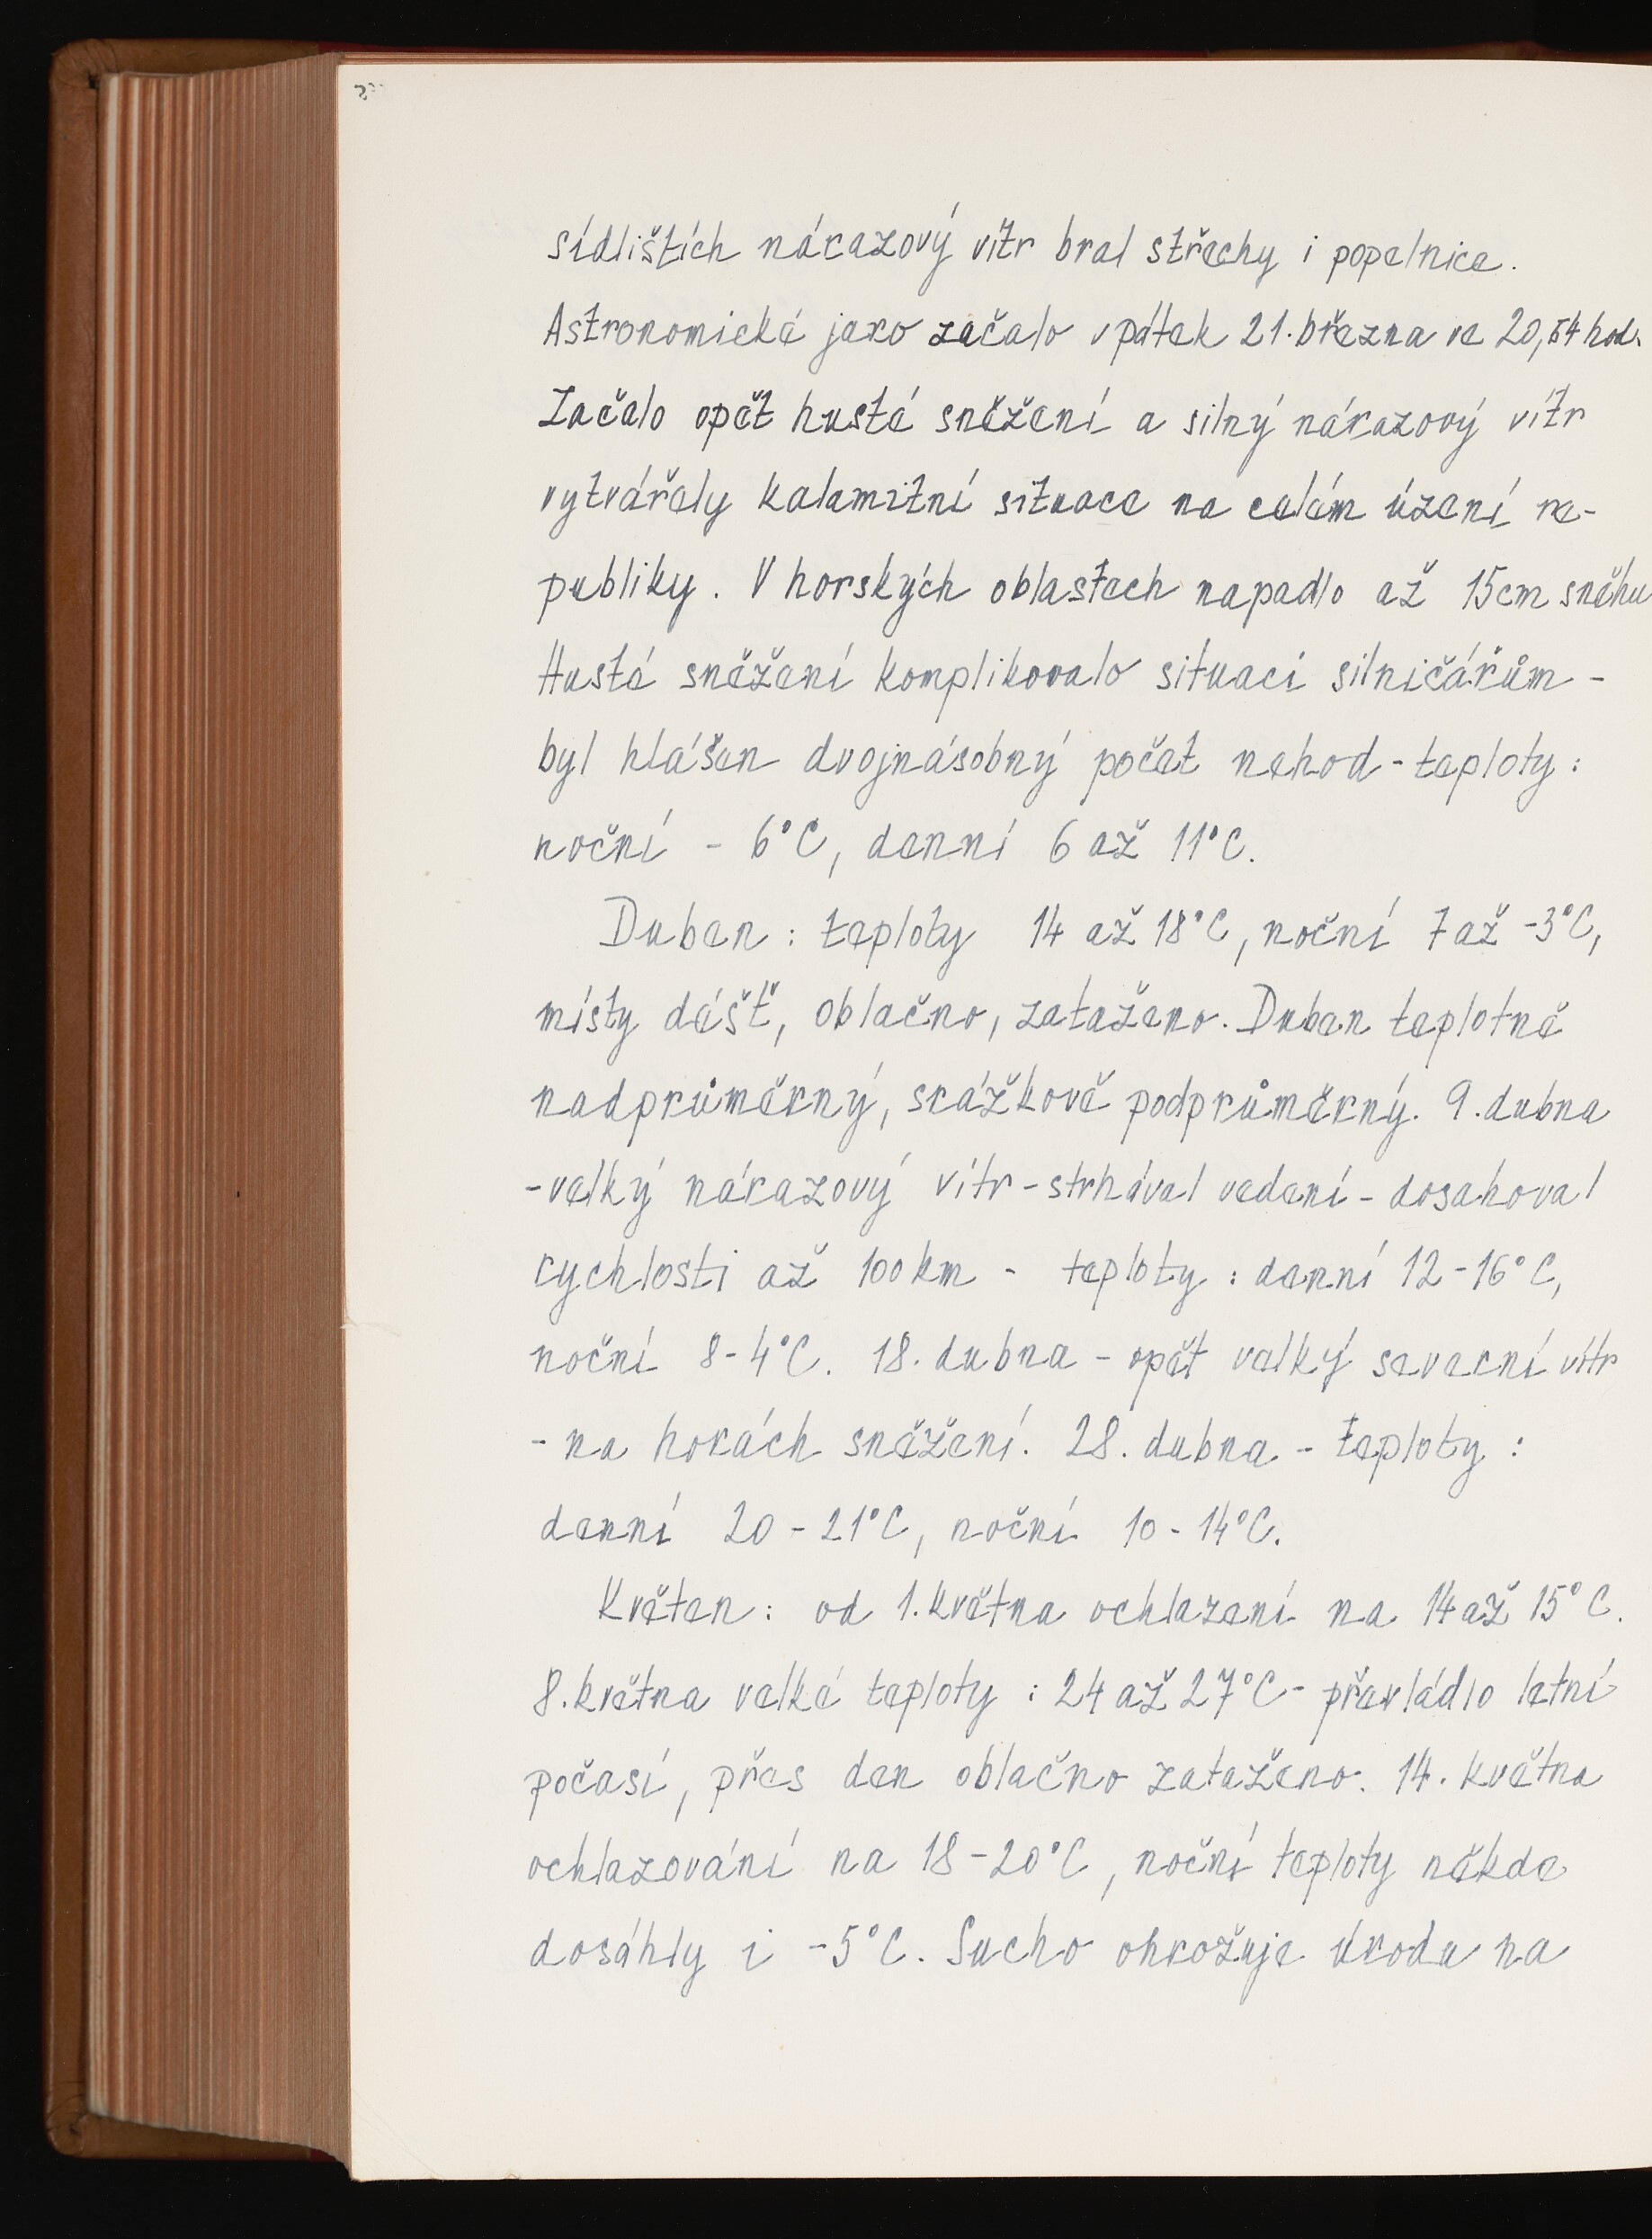 sídlištích nárazový vítr bral střechy i popelnice.
Astronomické jaro začalo v pátek 21. března ve 20,54 hod.
Začalo opět husté sněžení a silný nárazový vítr
vytvářely kalamitní situace na celém území re-
publiky. V horských oblastech napadlo až 15cm sněhu
Husté sněžení komplikovalo situaci silničářům -
byl hlášen dvojnásobný počet nehod - teploty :
noční - 6°C, denní 6 až 11°C.
Duben : teploty 14 až 18°C, noční 7 až -3°C,
místy déšť, oblačno, zataženo. Duben teplotně
nadprůměrný, srážkově podprůměrný. 9. dubna
- velký nárazový vítr - strhával vedení - dosahoval
rychlosti až 100 km - teploty : denní 12 - 16°C,
noční 8 - 4°C. 18. dubna - opět velký severní vítr
- na horách sněžení. 28. dubna - teploty :
denní 20 - 21°C, noční 10 - 14°C.
Květen : od 1. května ochlazení na 14 až 15°C.
8. května velké teploty : 24 až 27°C - převládlo letní
počasí, přes den oblačno zataženo. 14. května
ochlazování na 18 - 20°C, noční teploty někde
dosáhly i -5°C. Sucho ohrožuje úrodu na